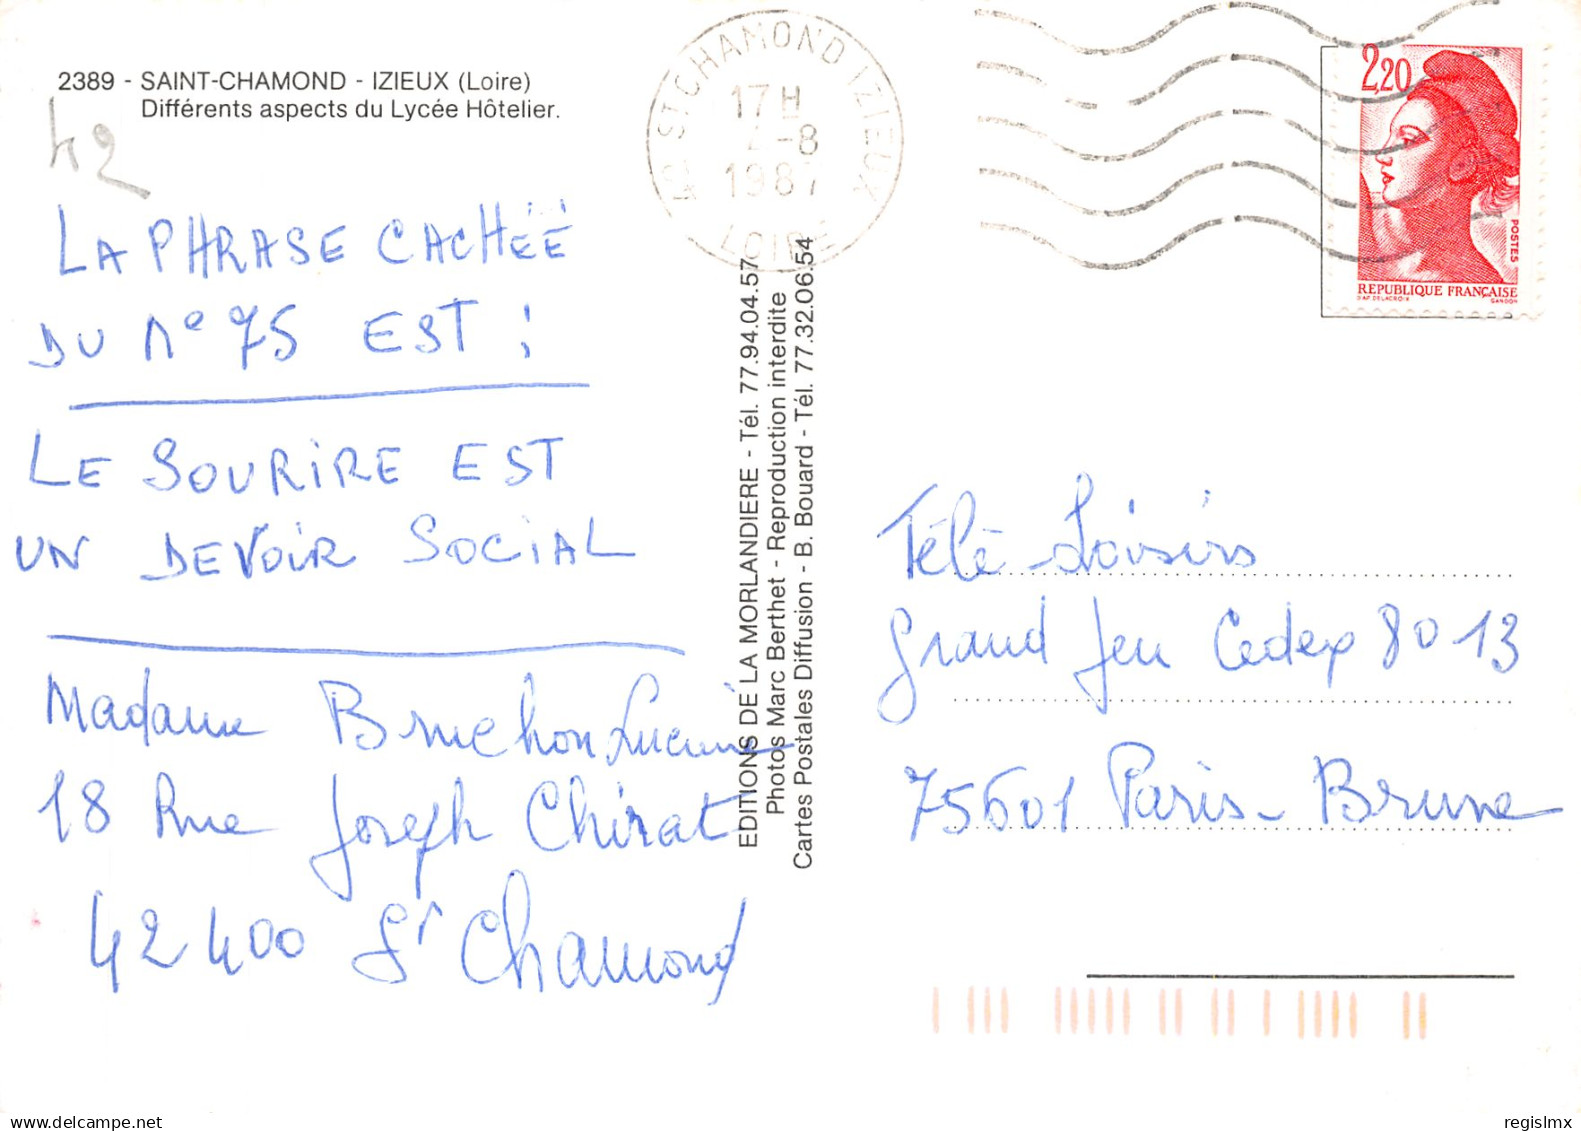 2389 - SAINT-CHAMOND - IZIEUX (Loire)
Différents aspects du Lycée Hôtelier.
42
LA PHRASE CACHÉÉ
DU N° 75 EST !
LE SOURIRE EST
UN DEVOIR SOCIAL
Madame Bruchon Lucienne
18 Rue Joseph Chirat
42400 St Chamond
EDITIONS DE LA MORLANDIERE - Tél. 77.94.04.57
Photos Marc Berthet - Reproduction interdite
Cartes Postales Diffusion - B. Bouard - Tél. 77.32.06.54
42 ST CHAMOND IZIEUX
17 H
4-8
1987
LOIRE
2,20
POSTES
REPUBLIQUE FRANÇAISE
DAP. DELACROIX GANDON
Télé Loisirs
Grand Jeu Cedex 8013
75601 Paris-Brune
regislmx